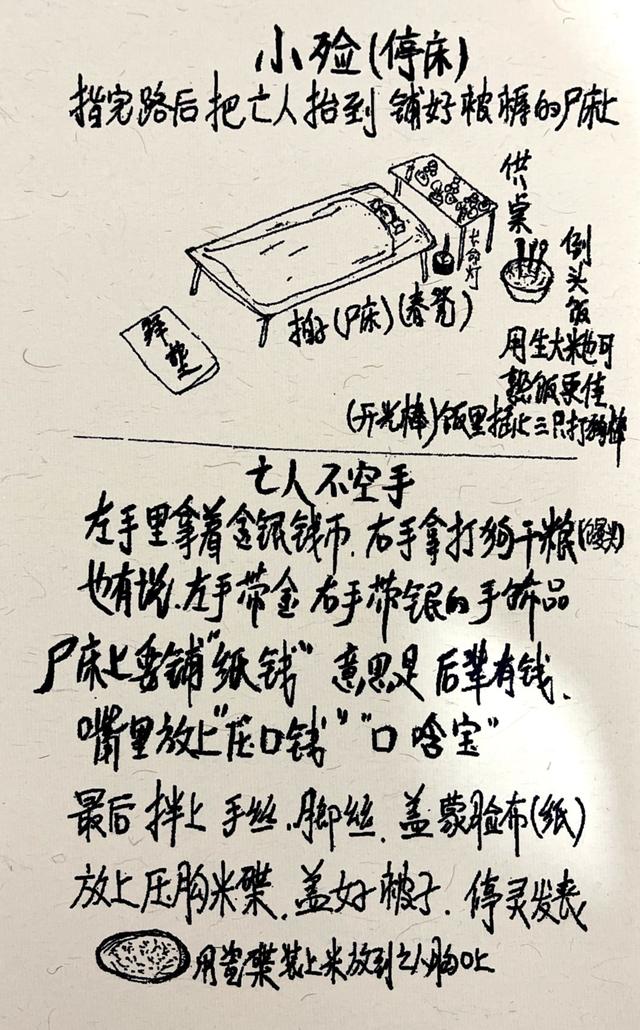 小殓(停床)
指完路后把亡人抬到铺好被褥的尸床上
供桌
长命灯
倒头饭
拍子(尸床)(春凳)
拜垫
用生大米也可
熟饭更佳
(开光棒)饭里插上三只打狗棒
亡人不空手
左手里拿着金银钱币.右手拿打狗干粮(馒头)
也有说.左手带金 右手带银的手饰品
尸床上要铺"纸钱" 意思是后辈有钱.
嘴里放上"压口钱""口含宝"
最后拌上手丝.脚丝.盖蒙脸布(纸)
放上压胸米碟.盖好被子.停灵发丧
用瓷碟装上米放到亡人胸口上